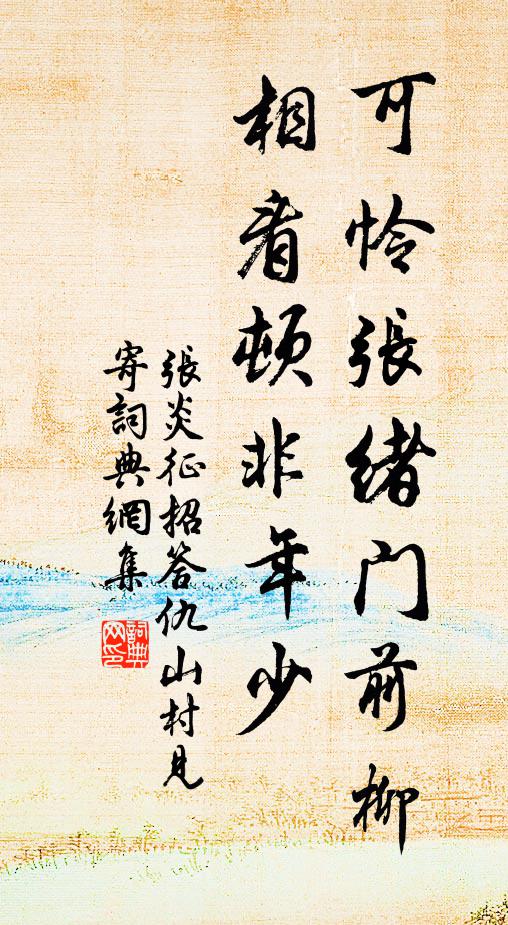 可怜張緒门前柳
相看頓非年少
張炎征招答仇山村見
寄詞典網集
詞典
网印